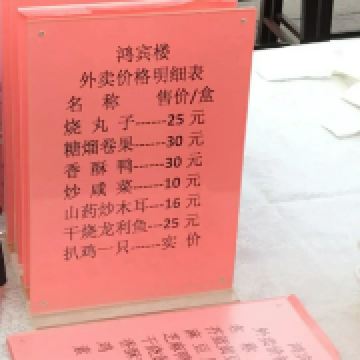 鸿宾楼
外卖价格明细表
名 称 售价/盒
烧 丸 子------25 元
糖熘卷果------30 元
香 酥 鸭------30 元
炒 咸 菜------10 元
山药炒木耳---16 元
干烧龙利鱼---25 元
扒鸡一只------实 价